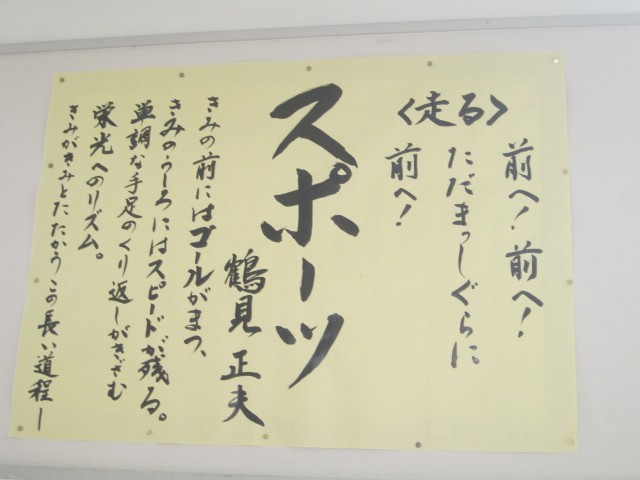 スポーツ
鶴見正夫
〈走る〉
前へ！前へ！
ただまっしぐらに
前へ！
きみの前にはゴールがまつ、
きみのうしろにはスピードが残る。
単調な手足のくり返しがきざむ
栄光へのリズム。
きみがきみとたたかうこの長い道程ー